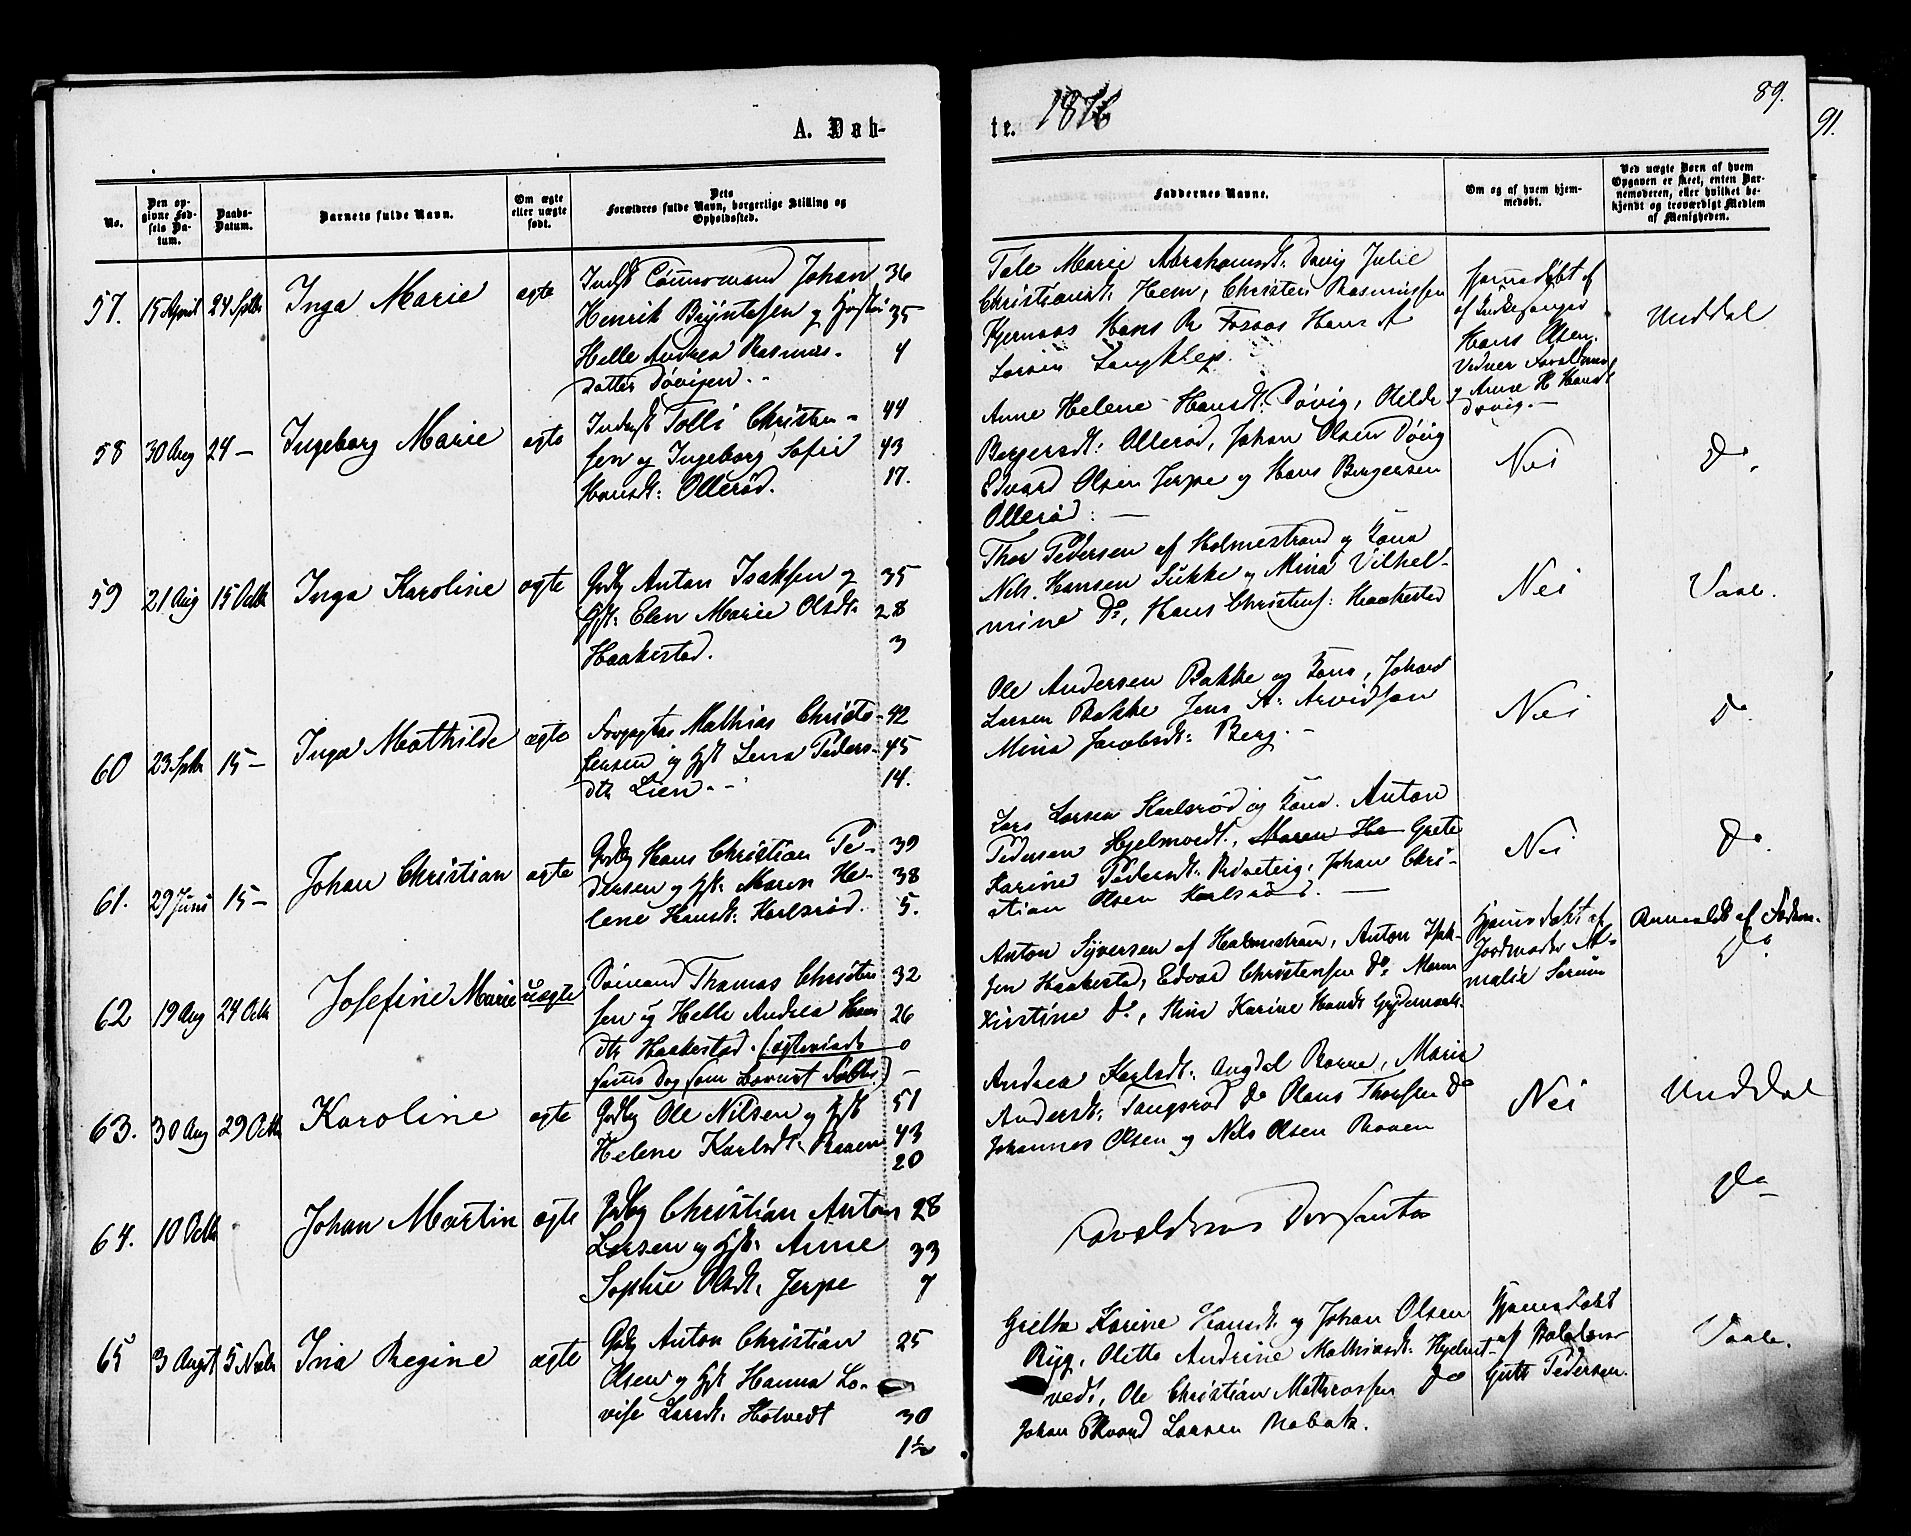 89.
91.
A. Døb-
te. 1876
No.
Den op-
givne Fød-
sels Da-
tum.
Daabs-
Datum.
Barnets fulde Navn.
Om ægte
eller uægte
født.
Dets
Forældres fulde Navn, borgerlige Stilling og
Opholdssted.
Faddernes Navne.
Om og af hvem hjem-
medøbt.
Ved uægte Børn af hvem
Opgaven er skeet, enten Bar-
nemoderen, eller hvilket be-
kjendt og troværdigt Medlem
af Menigheden.
57. 15 April 24 Septbr Inga Marie ægte
Indst Tømmermand Johan 36
Henrik Bryntesen og Hustru 35
Helle Andrea Rasmus- 4
datter Døvigen.
Tale Marie Abrahamsdt: Døvig Julie
Christiansdt: Hem, Christen Rasmussen
Kjernaas Hans B. Fosaas Hans A
Larsen Langklep.
Hjemmedøbt af
Hans Olsen.
og Anne H. Hansdt
Døvig.
Unddal
58 30 Aug 24 — Ingeborg Marie ægte
Inderst Tolli Christen- 44
sen og Ingeborg Sofie 43
Hansdt: Ollerød. 17.
Anne Helene Hansdt: Døvig, Olilde
Borgersdt: Ollerød, Johan Olsen Døvig
Edvard Olsen Jerpe og Hans Borgersen
Ollerød: —
Nei
Do
59 21 Aug 15 Octb Inga Karoline ægte
Gbdbg Anton Isaksen og 35
Hst: Elen Marie Olsdt: 28
Haakestad. 3
Thor Pedersen af Holmestrand og Kone
Nils Hansen Sukke og Mina Vilhel-
mine Do, Hans Christens: Haakestad
Nei
Vaale.
60 23 Sptbr 15 — Inga Mathilde ægte
Forpagter Mathias Christo- 42
fersen og Hst Lena Peders- 45
dtr Lien. 14.
Ole Andersen Bakke og Kone, Johan
Larsen Bakke Jens A: Arvidsen
Mina Jacobsdt: Berg. —
Nei
Do
61. 29 Juni 15 — Johan Christian ægte
Gbdbg Hans Christian Pe- 39
dersen og Hst: Maren He- 38
lene Hansdt: Karlsrød. 5.
Lars Larsen Karlsrød og Kone. Anton
Pedersen Hjelmvedt., Maren Ha Grete
Karine Pedersdt: Rødveteig, Johan Chri-
stian Olsen Karlsrød. —
Nei
Do.
62 19 Aug 24 Octb Josefine Marie uægte
Sømand Thomas Christen 32
sen og Helle Andrea Hans 26
dtr Haakestad. (ægteviede 0
samme Dag som Barnet døbtes) —
Anton Syversen af Holmestrand, Anton Isak-
sen Haakestad, Edvard Christensen Do: Maren
Kirstine Do, Stine Karine Hansdt
Hjemmedøbt af
Jordmoder A-
malie Sørum
Anmeldt af Faderen.
Do
63. 30 Aug 29 Octb Karoline ægte
Gbdbg Ole Nilsen og Hst 51
Helene Karlsdt: Raaen 43
20
Andrea Karlsdt: Borre, Marie
Andersdt: Tangsrød Do Olaus Thorsen Do
Johannes Olsen og Nils Olsen Raaen
Nei
Unddal
64. 10 Octb Johan Martin ægte
Gbdbg Christian Anton 28
Larsen og Hst: Anne 33
Sophie Olsdt, Jerpe 7
Forældrene Dissentere
Do
65 3 Augst 5 Novbr Ina Regine ægte
Gbdbg Anton Christian 25
Olsen og Hst Hanna Lo-
vise Larsdt: Holvedt 30
1½
Grethe Karine Hansdt og Johan Olsen
Ryg, Olitte Andrine Mathiasdt: Hjelmt-
vedt, Ole Christian Mathiassen Do
Johan Edvard Larsen
Hjemmedøbt
af
Guth Pedersen.
Vaale.